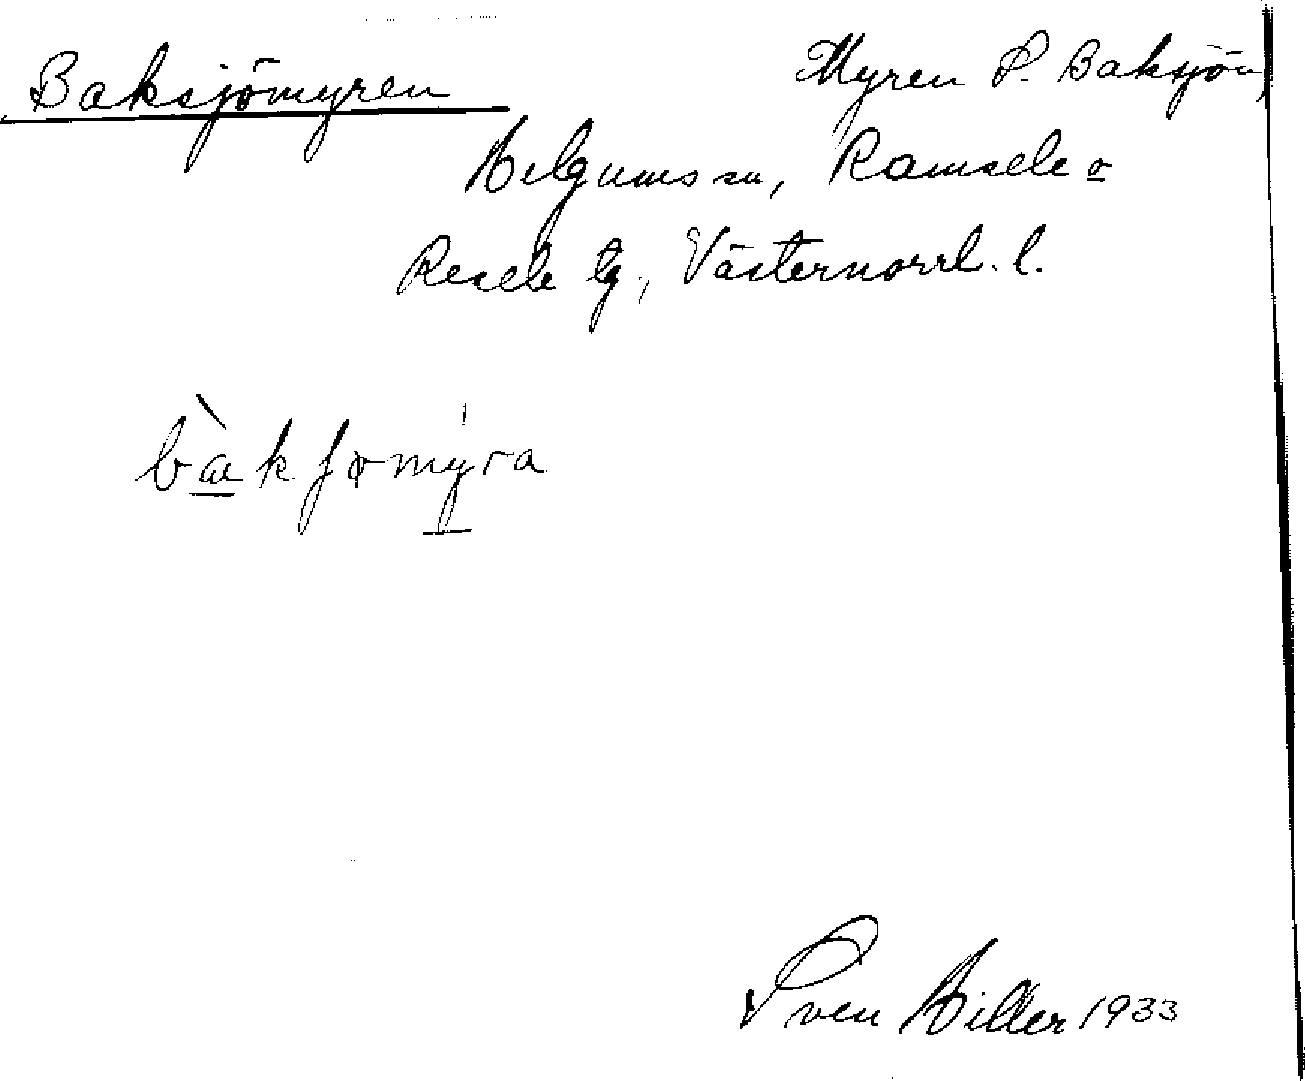 Baksjömyren
Myren S. Baksjön,
Helgums sn, Ramsele o
Resele tg, Västernorrl. l.
Sven Hiller 1933